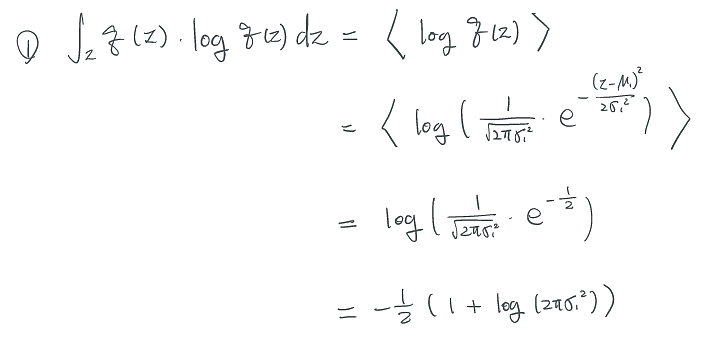 ① ∫_z q(z) · log q(z) dz = ⟨ log q(z) ⟩
= ⟨ log ( 1/√(2πσ₁²) · e^(-(z-μ₁)²/(2σ₁²)) ) ⟩
= log ( 1/√(2πσ₁²) · e^(-1/2) )
= -1/2 ( 1 + log (2πσ₁²) )